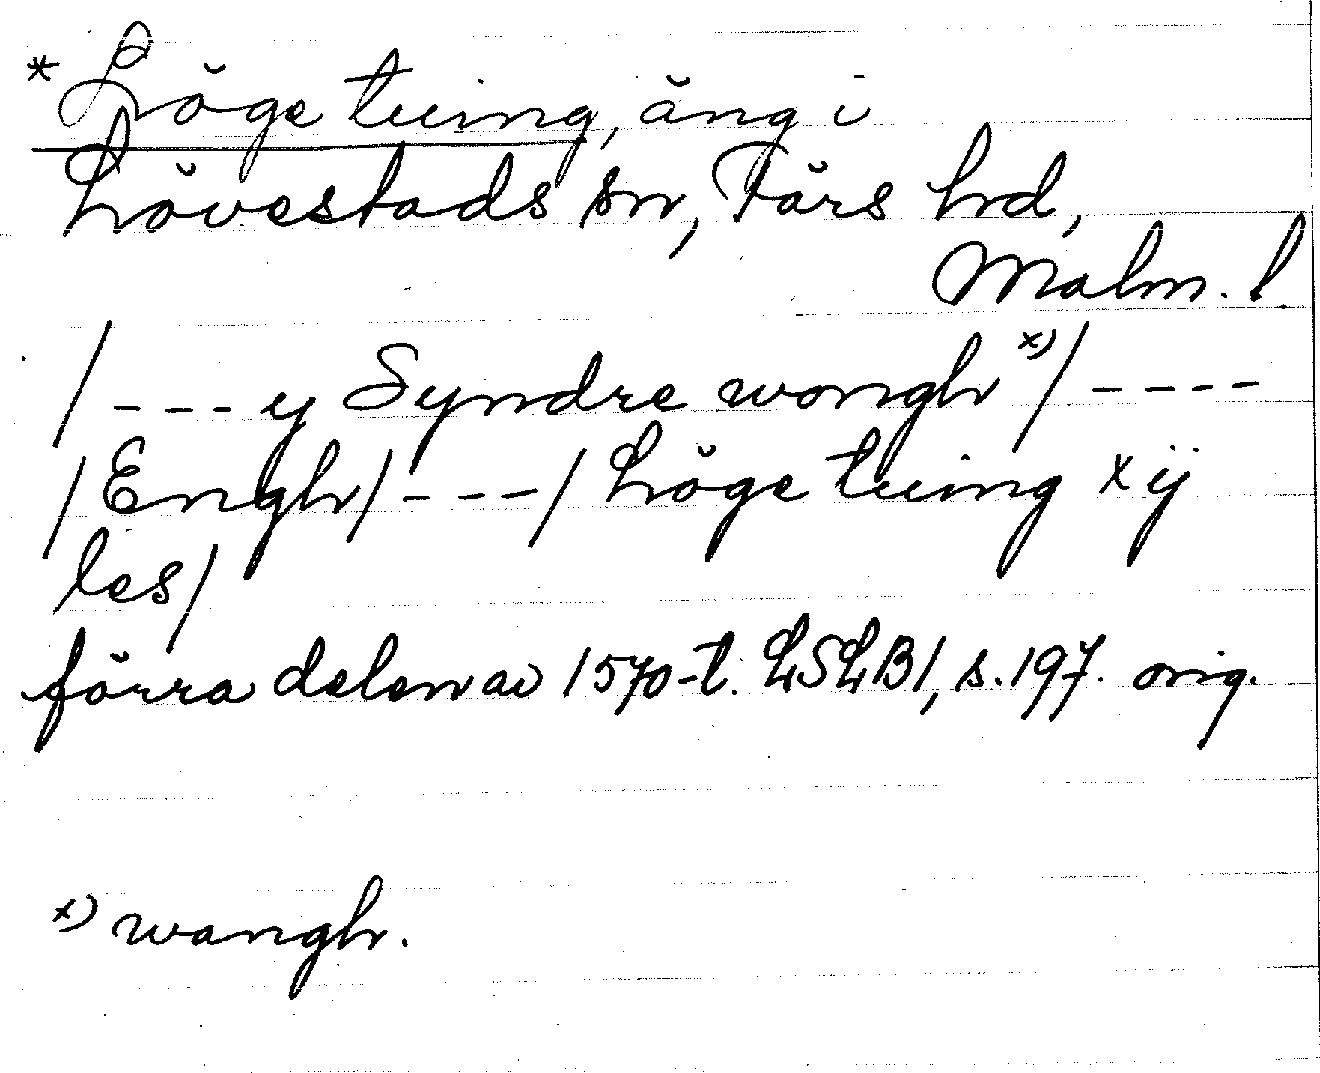 *Löge tuing, äng i
Lövestads sn, Färs hd,
Malm. l.
/---y Syndre wongh x)/----
/Engh/---/Löge tuing xij
les/
förra delen av 1570-t. LSLB1, s. 197. orig.
x) wangh.